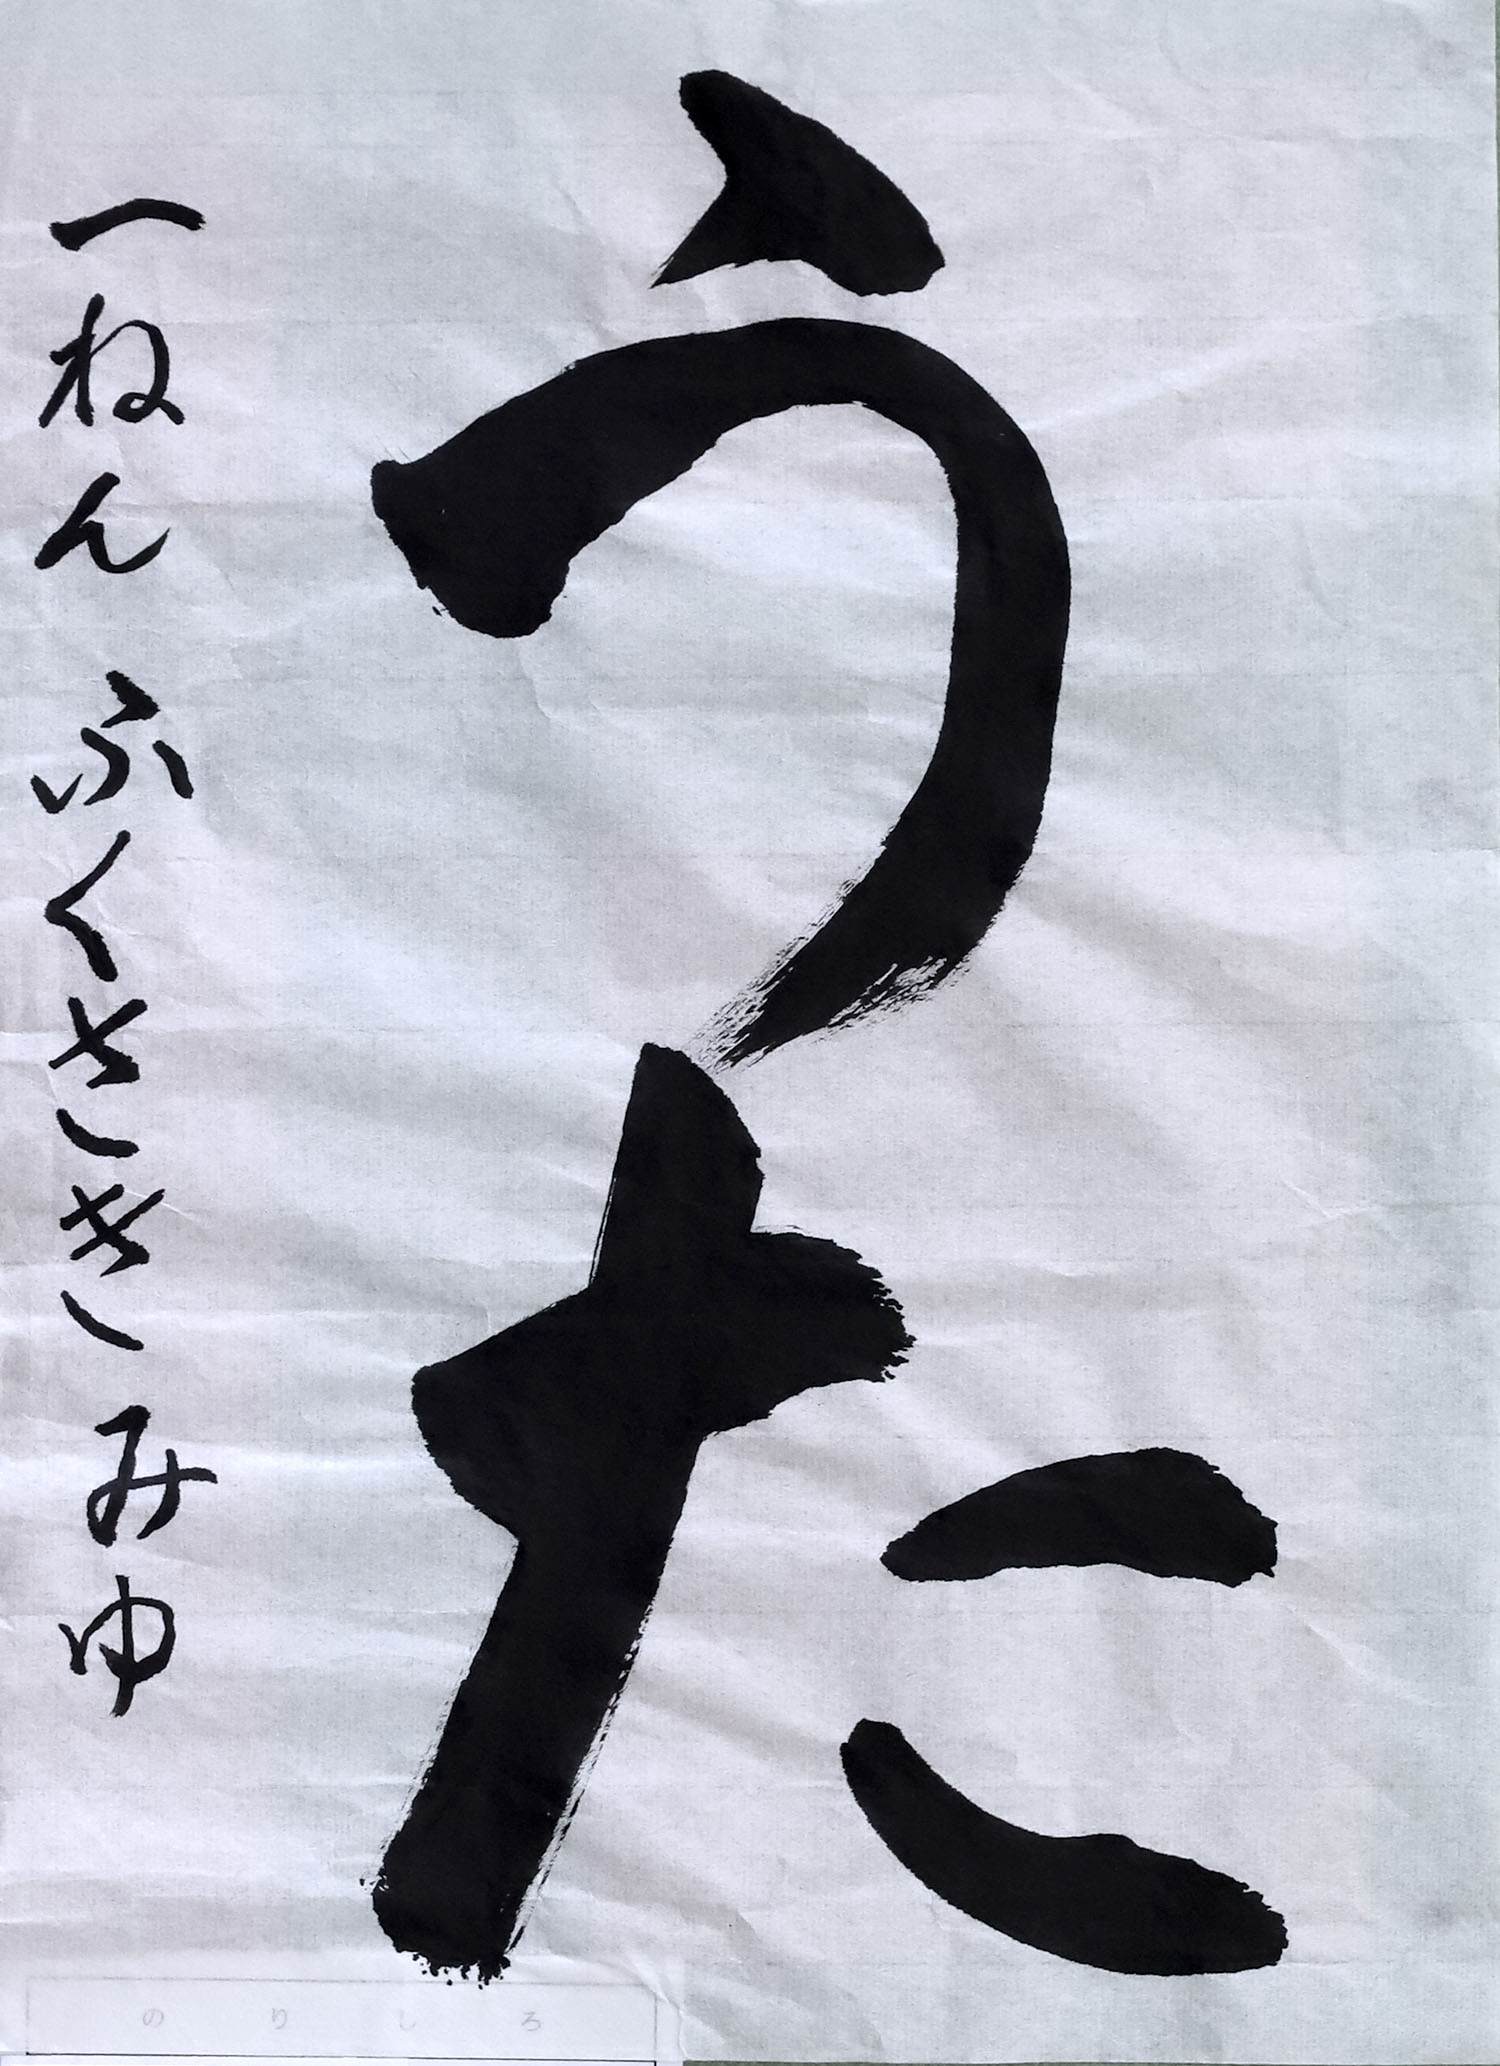 うた
一ねん ふくさき みゆ
のりしろ